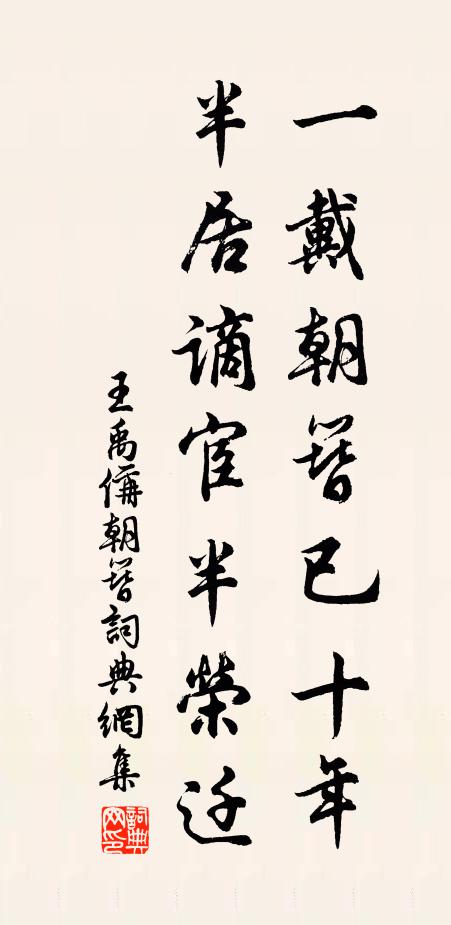 一戴朝簪已十年
半居謫宦半榮迁
王禹偁朝簪詞典網集
詞典网印